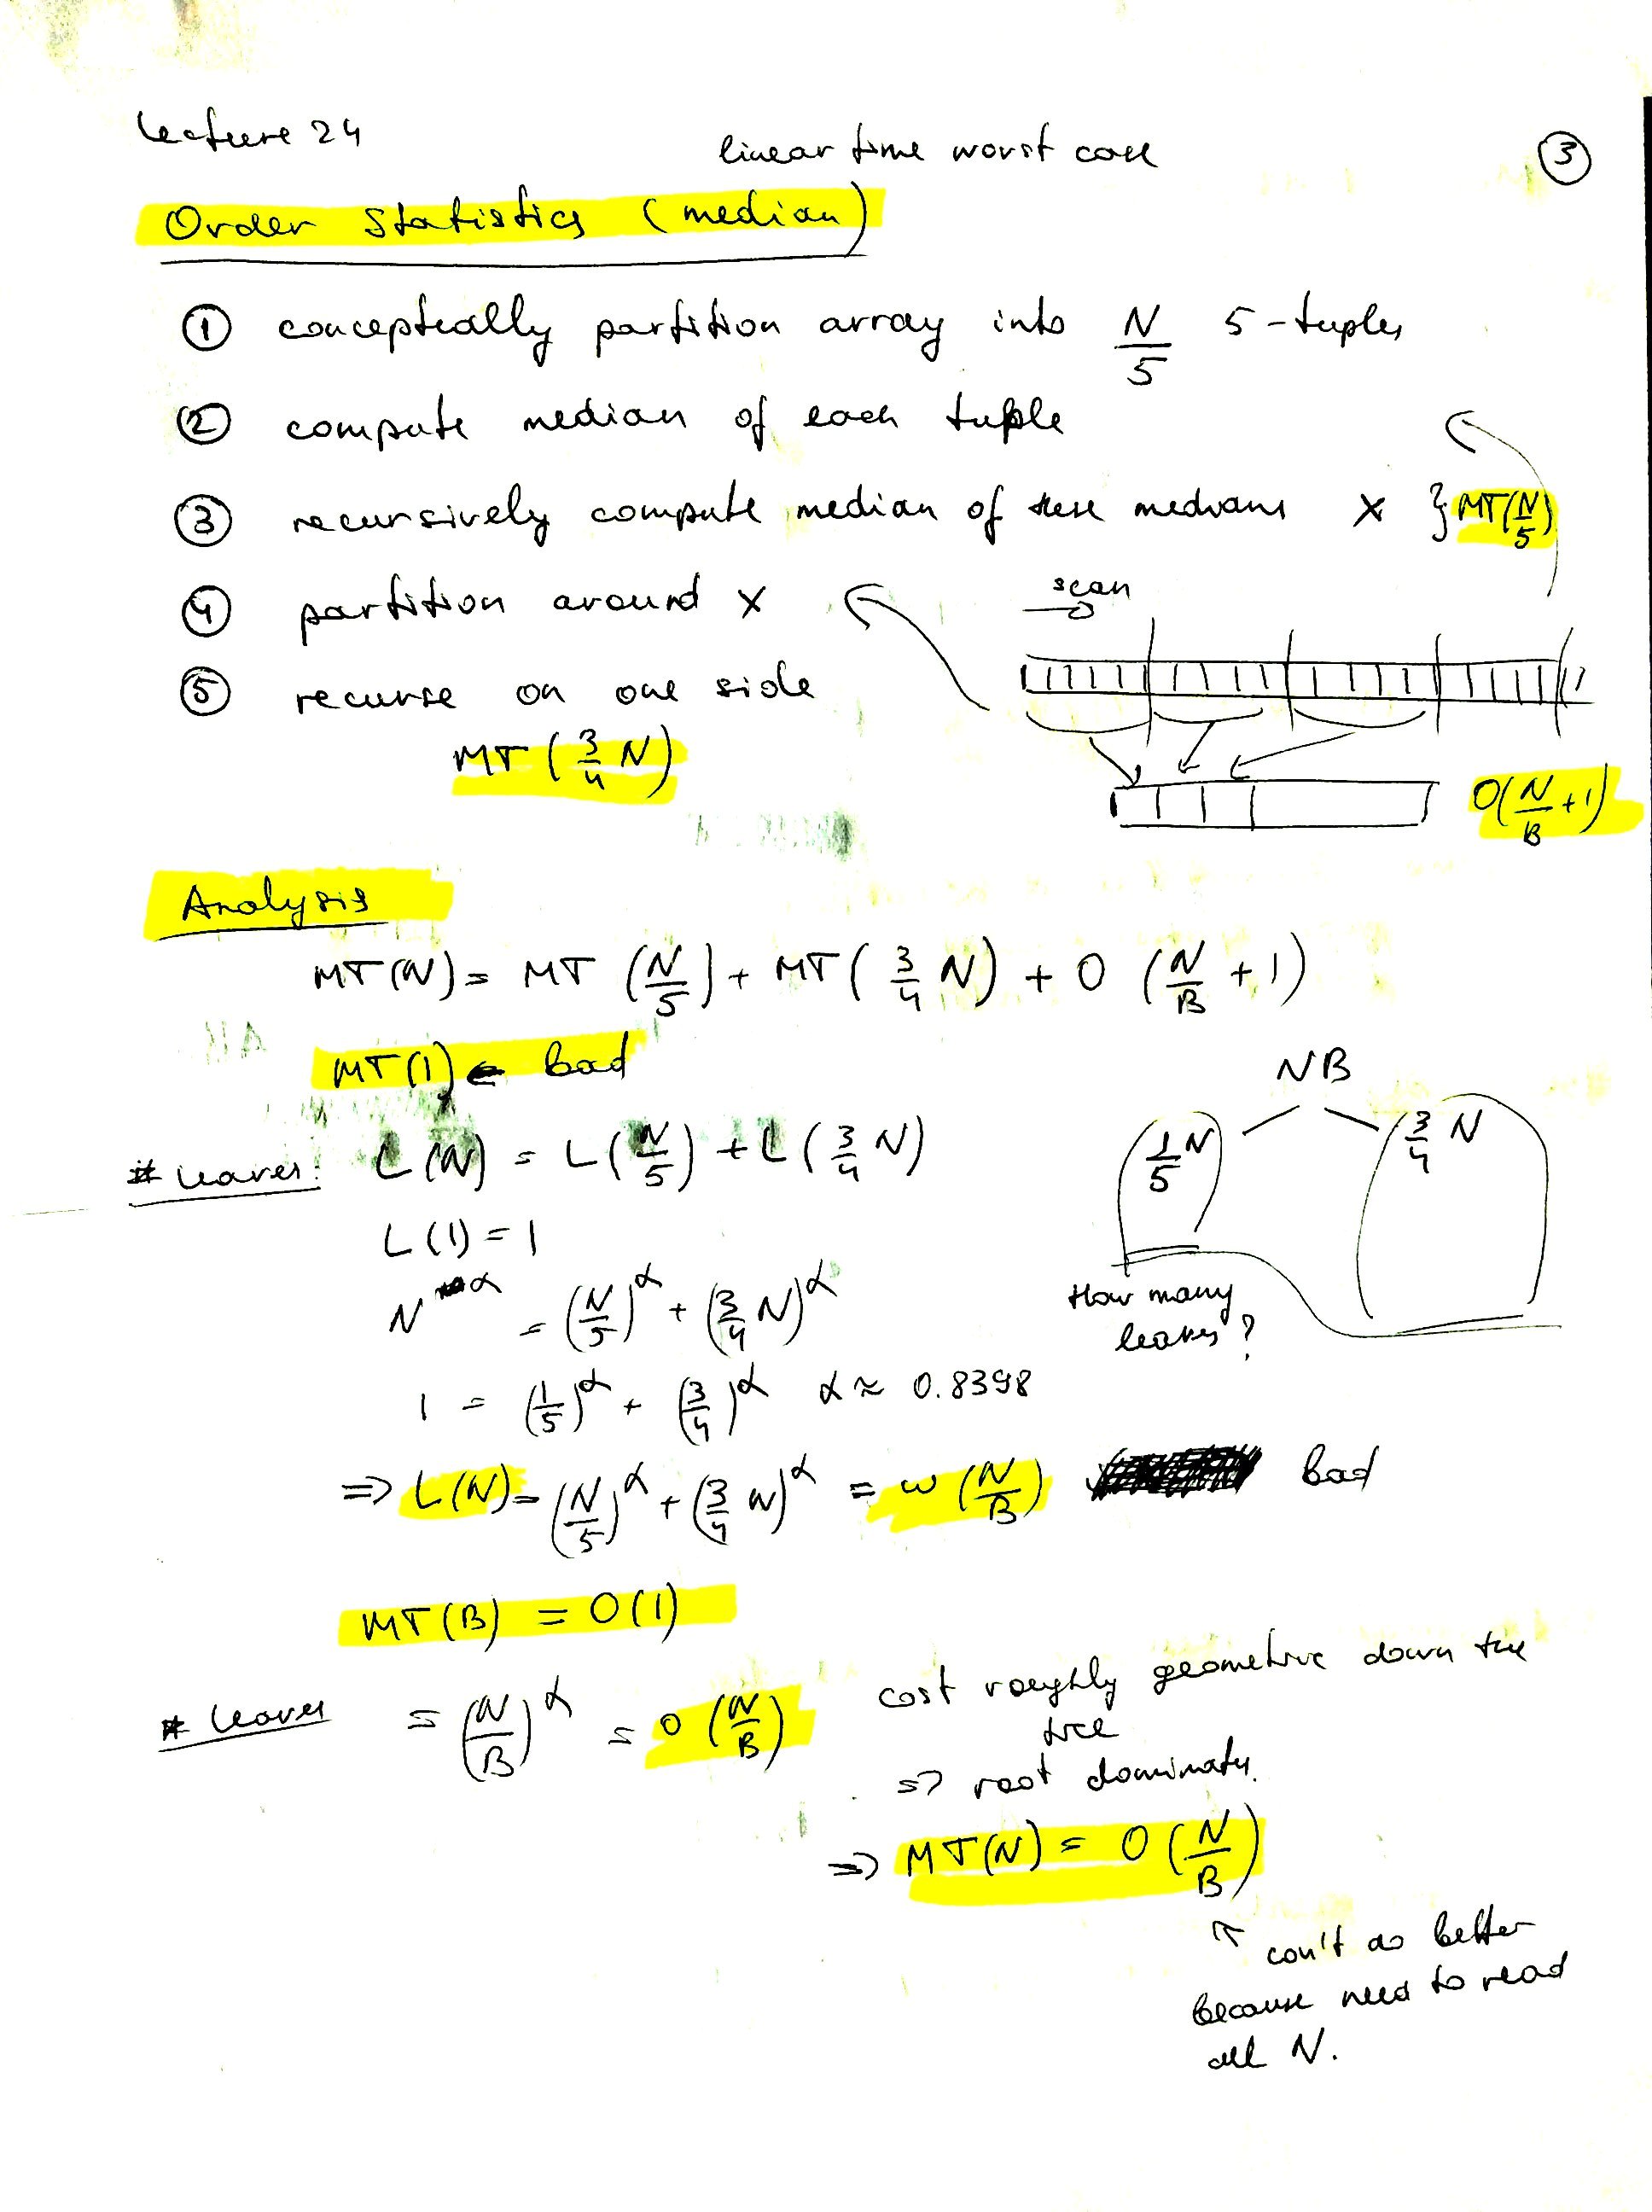 Lecture 24
linear time worst case
3
Order Statistics (median)
① conceptually partition array into N/5 5-tuples
② compute median of each tuple
③ recursively compute median of these medians x } MT(N/5)
④ partition around x
scan
⑤ recurse on one side
MT(3/4 N)
O(N/B +1)
Analysis
MT(N) = MT(N/5) + MT(3/4 N) + O(N/B +1)
MT(1) ← bad
NB
1/5 N
3/4 N
# leaves: L(N) = L(N/5) + L(3/4 N)
L(1) = 1
N^α = (N/5)^α + (3/4 N)^α
How many
leaves?
1 = (1/5)^α + (3/4)^α α ≈ 0.8398
⇒ L(N) = (N/5)^α + (3/4 N)^α = ω(N/B) bad
MT(B) = O(1)
# leaves = (N/B)^α = o(N/B)
cost roughly geometric down the
tree
⇒ root dominates.
⇒ MT(N) = O(N/B)
↑ can't do better
because need to read
all N.